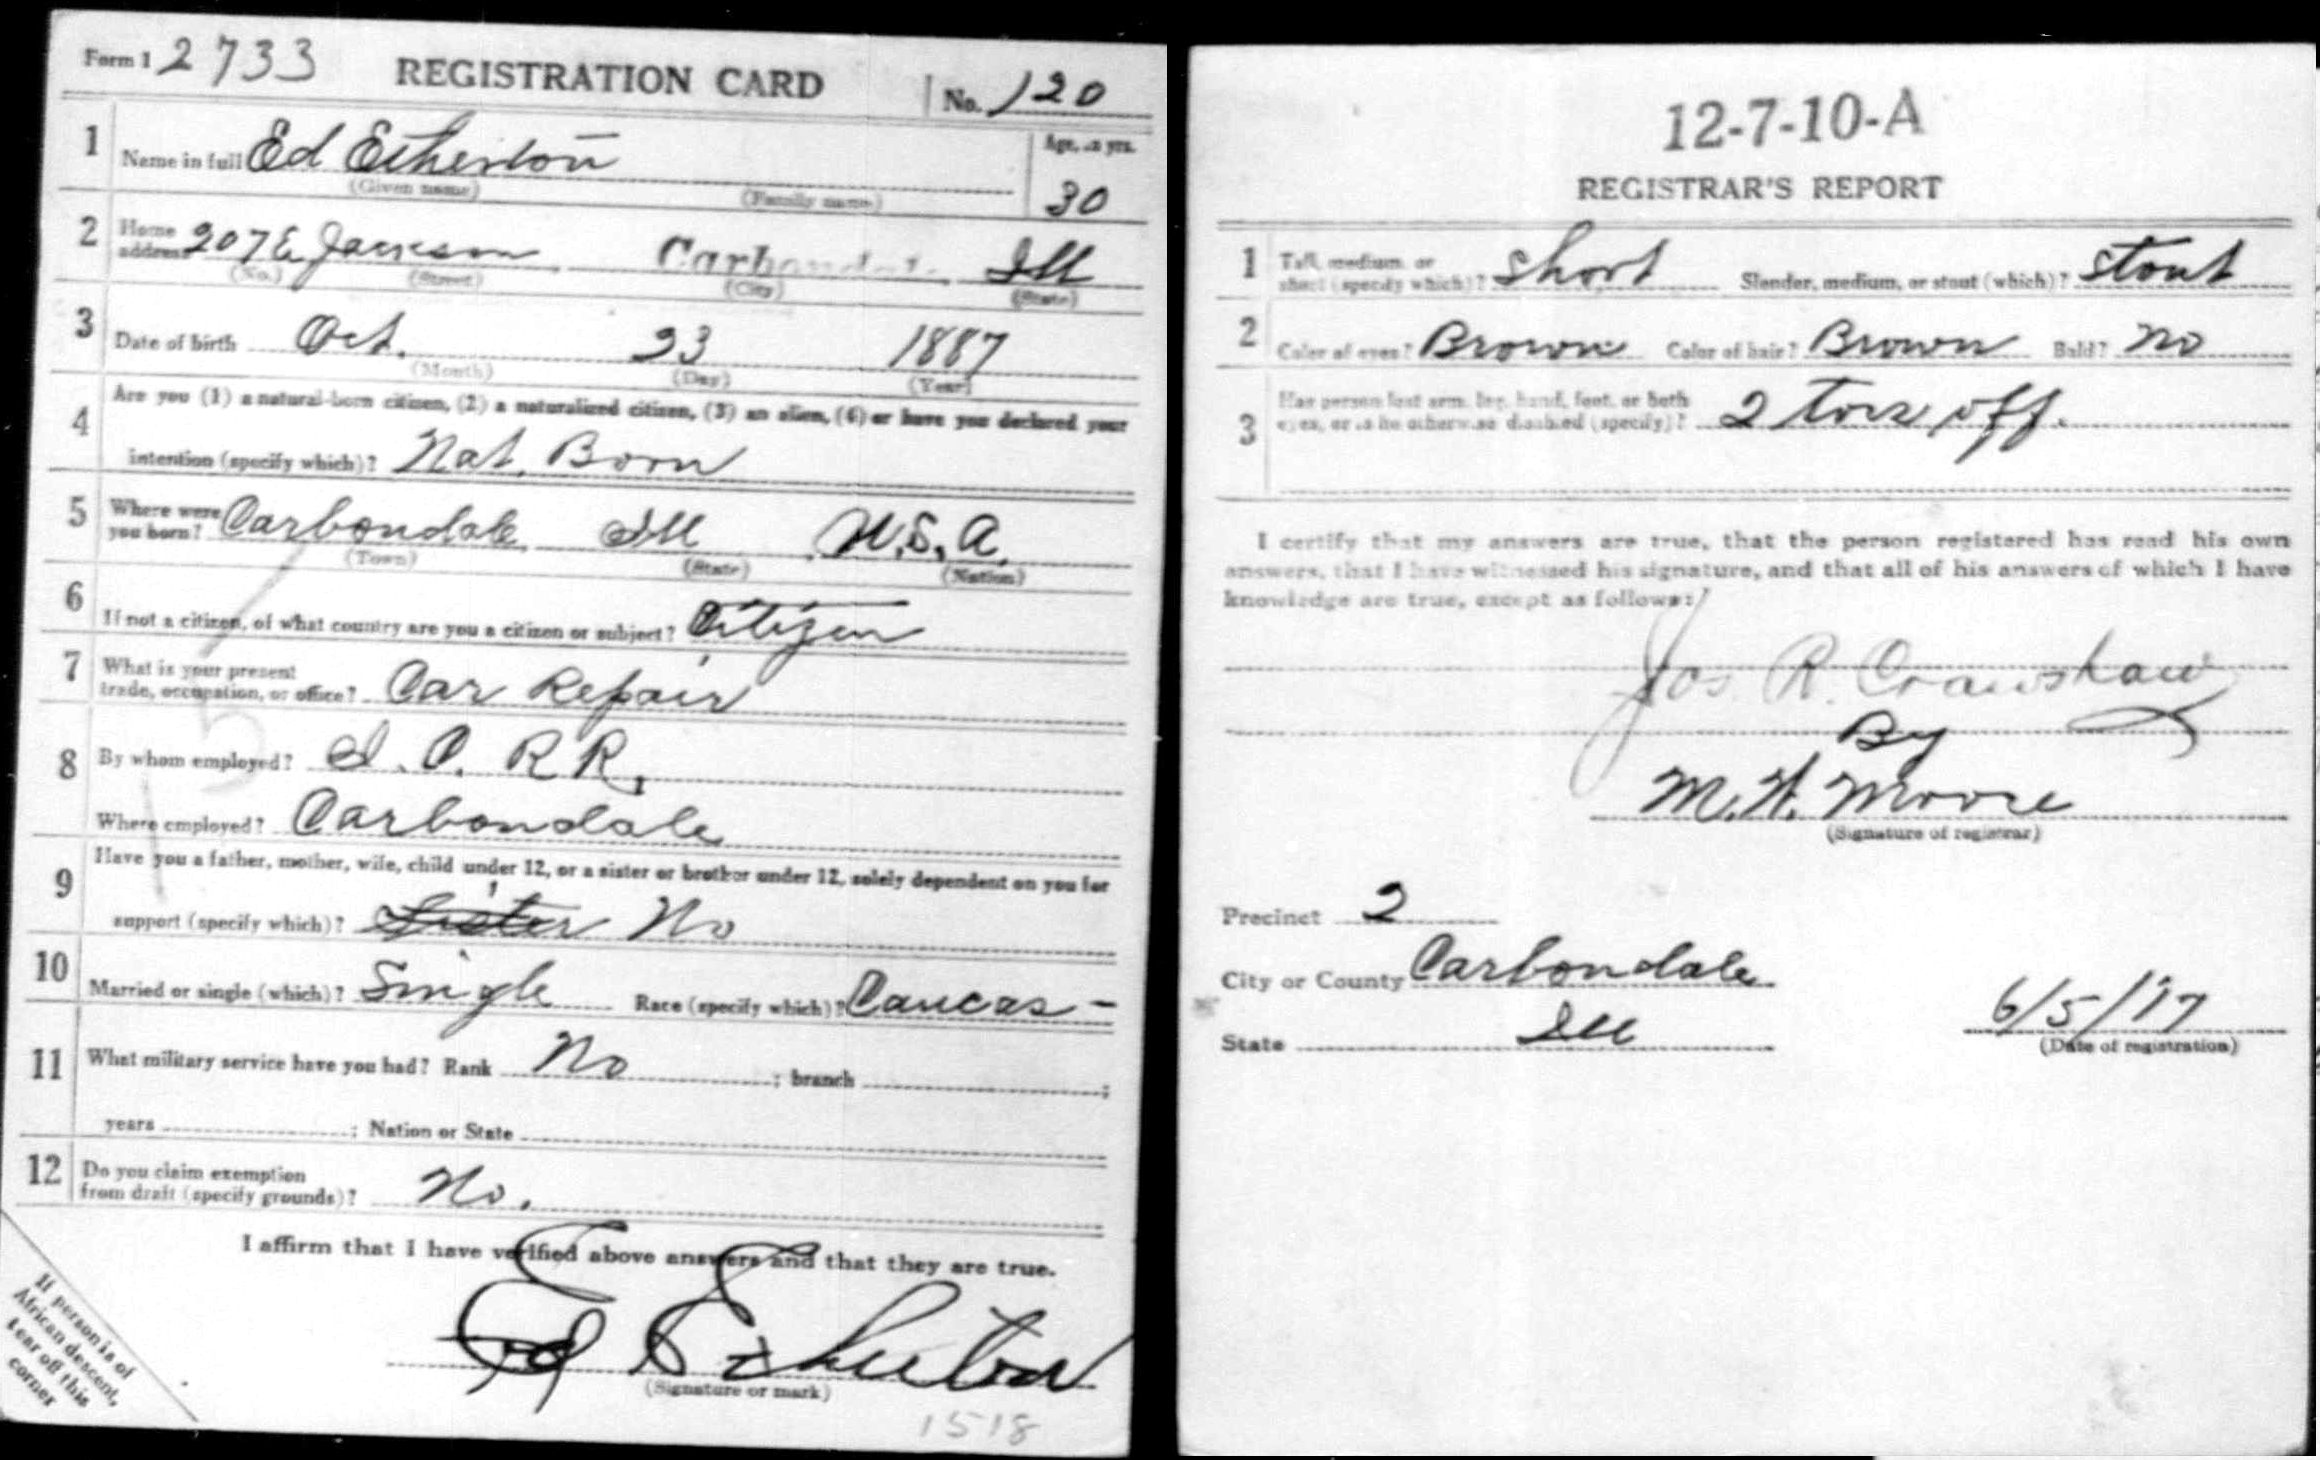 Form 1 2733 REGISTRATION CARD No. 120
1 Name in full Ed Etherton Age, in yrs.
(Given name) (Family name) 30
2 Home address 207 E. Jackson Carbondale Ill
(No.) (Street) (City) (State)
3 Date of birth Oct. 23 1887
(Month) (Day) (Year)
4 Are you (1) a natural-born citizen, (2) a naturalized citizen, (3) an alien, (4) or have you declared your
intention (specify which)? Nat. Born
5 Where were you born? Carbondale Ill U.S.A.
(Town) (State) (Nation)
6 If not a citizen, of what country are you a citizen or subject? Citizen
7 What is your present
trade, occupation, or office? Car Repair
8 By whom employed? I. C. R R.
Where employed? Carbondale
9 Have you a father, mother, wife, child under 12, or a sister or brother under 12, solely dependent on you for
support (specify which)? Sister No
10 Married or single (which)? Single Race (specify which)? Caucas-
11 What military service have you had? Rank No ; branch ;
years ; Nation or State
12 Do you claim exemption
from draft (specify grounds)? No.
I affirm that I have verified above answers and that they are true.
Ed Etherton
(Signature or mark)
1518
If person is of
African descent,
tear off this
corner
12-7-10-A
REGISTRAR'S REPORT
1 Tall, medium, or
short (specify which)? Short Slender, medium, or stout (which)? Stout
2 Color of eyes? Brown Color of hair? Brown Bald? No
3 Has person lost arm, leg, hand, foot, or both
eyes, or is he otherwise disabled (specify)? 2 toes off.
I certify that my answers are true, that the person registered has read his own
answers, that I have witnessed his signature, and that all of his answers of which I have
knowledge are true, except as follows:
Jos R. Crawshaw
By
M. H. Moore
(Signature of registrar)
Precinct 2
City or County Carbondale
State Ill 6/5/17
(Date of registration)